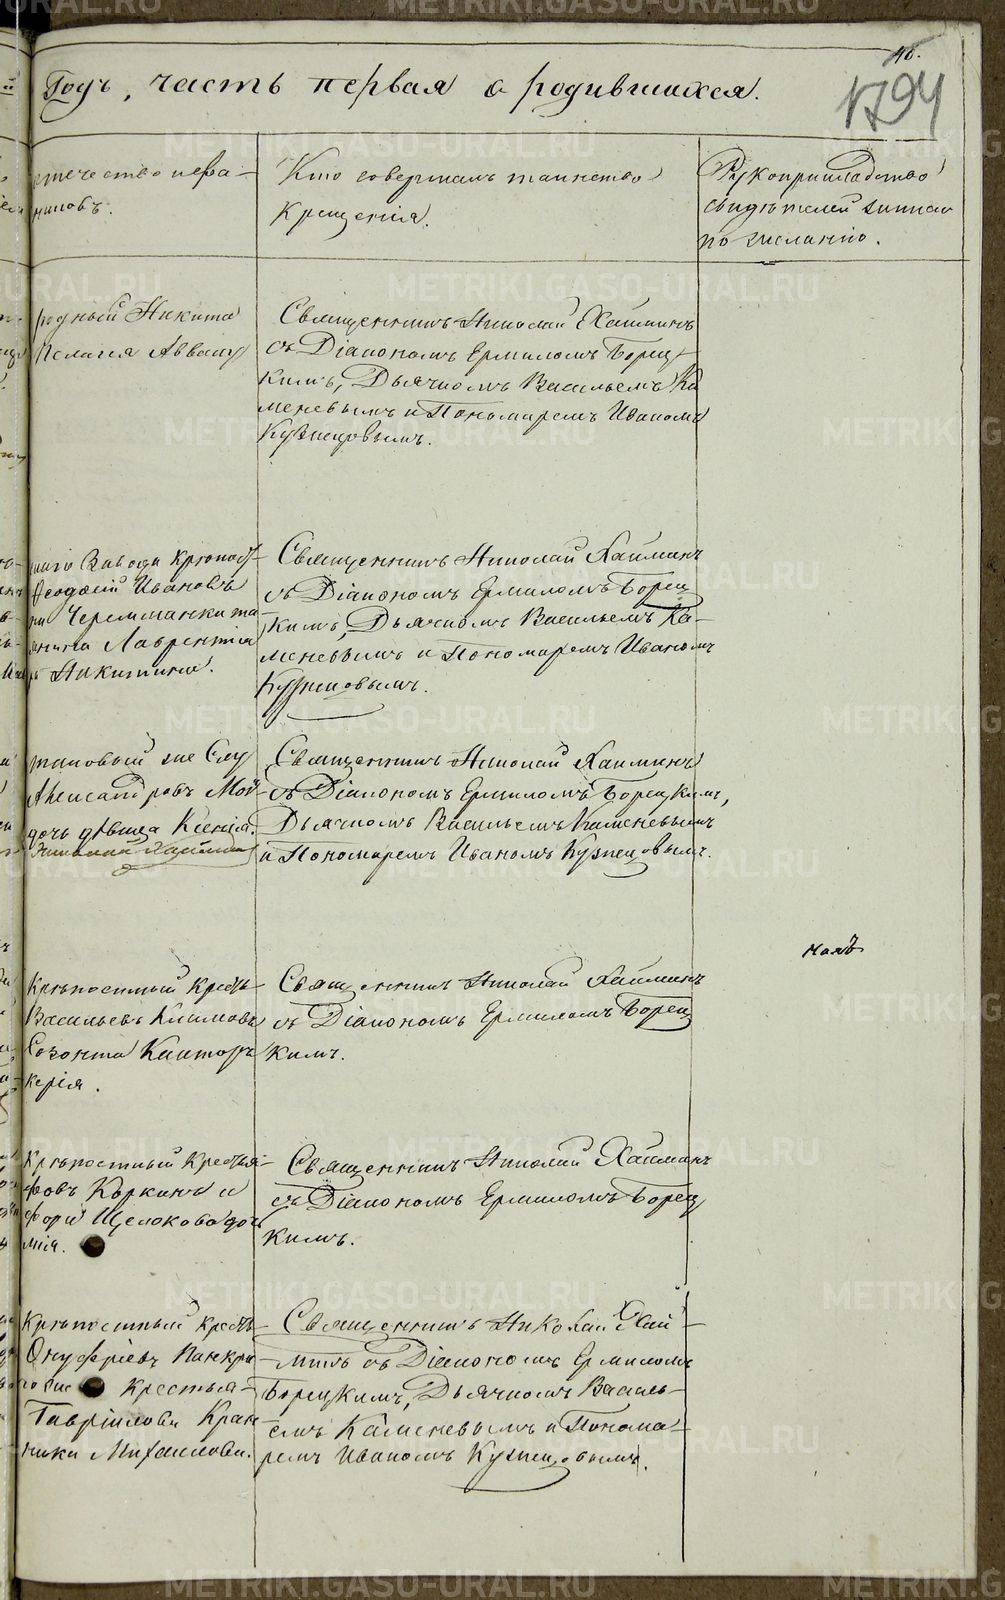 46.
1794
Годъ, часть первая о родившихся.
отчество и фа-
милiя.
Кто совершалъ таинство
Крещенiя.
Рукоприкладство
свидѣтелей записи
по желанiю.
родный Никита
Пелагея Аввак
Священникъ Николай Хайминъ
съ Дiакономъ Ермиломъ Борец-
кимъ, Дьячкомъ Васильемъ Ка
меневымъ и Пономаремъ Иваномъ
Кузнецовымъ.
Завода Крѣпост-
Ѳеодосiй Ивановъ
Лаврентiя
Никитина.
Священникъ Николай Хайминъ
съ Дiакономъ Ермиломъ Борец
кимъ, Дьячкомъ Васильемъ Ка-
меневымъ и Пономаремъ Иваномъ
Кузнецовымъ.
таковой же Слу
Александровъ Мой
дочь дѣвица Ксенiя.
Николай Хайминъ
Священникъ Николай Хайминъ
съ Дiакономъ Ермиломъ Борецкимъ,
Дьячкомъ Васильемъ Каменевымъ
и Пономаремъ Иваномъ Кузнецовымъ.
Крѣпостный Кресть-
Васильевъ Климовъ
Созонта
керiя.
Священникъ Николай Хайминъ
съ Дiакономъ Ермиломъ Борец
кимъ.
Крѣпостный Крестья-
фовъ Коркинъ и
фора Щелокова доч
мiя.
Священникъ Николай Хайминъ
съ Дiакономъ Ермиломъ Борец
кимъ.
Крѣпостный Кресть-
Онуфрiевъ Панкра
Крестья-
Гаврiилова Кран
ники Михаилова.
Священникъ Николай Хай-
минъ съ Дiакономъ Ермиломъ
Борецкимъ, Дьячкомъ Василь-
емъ Каменевымъ и Понома-
ремъ Иваномъ Кузнецовымъ.
METRIKI.GASO-URAL.RU